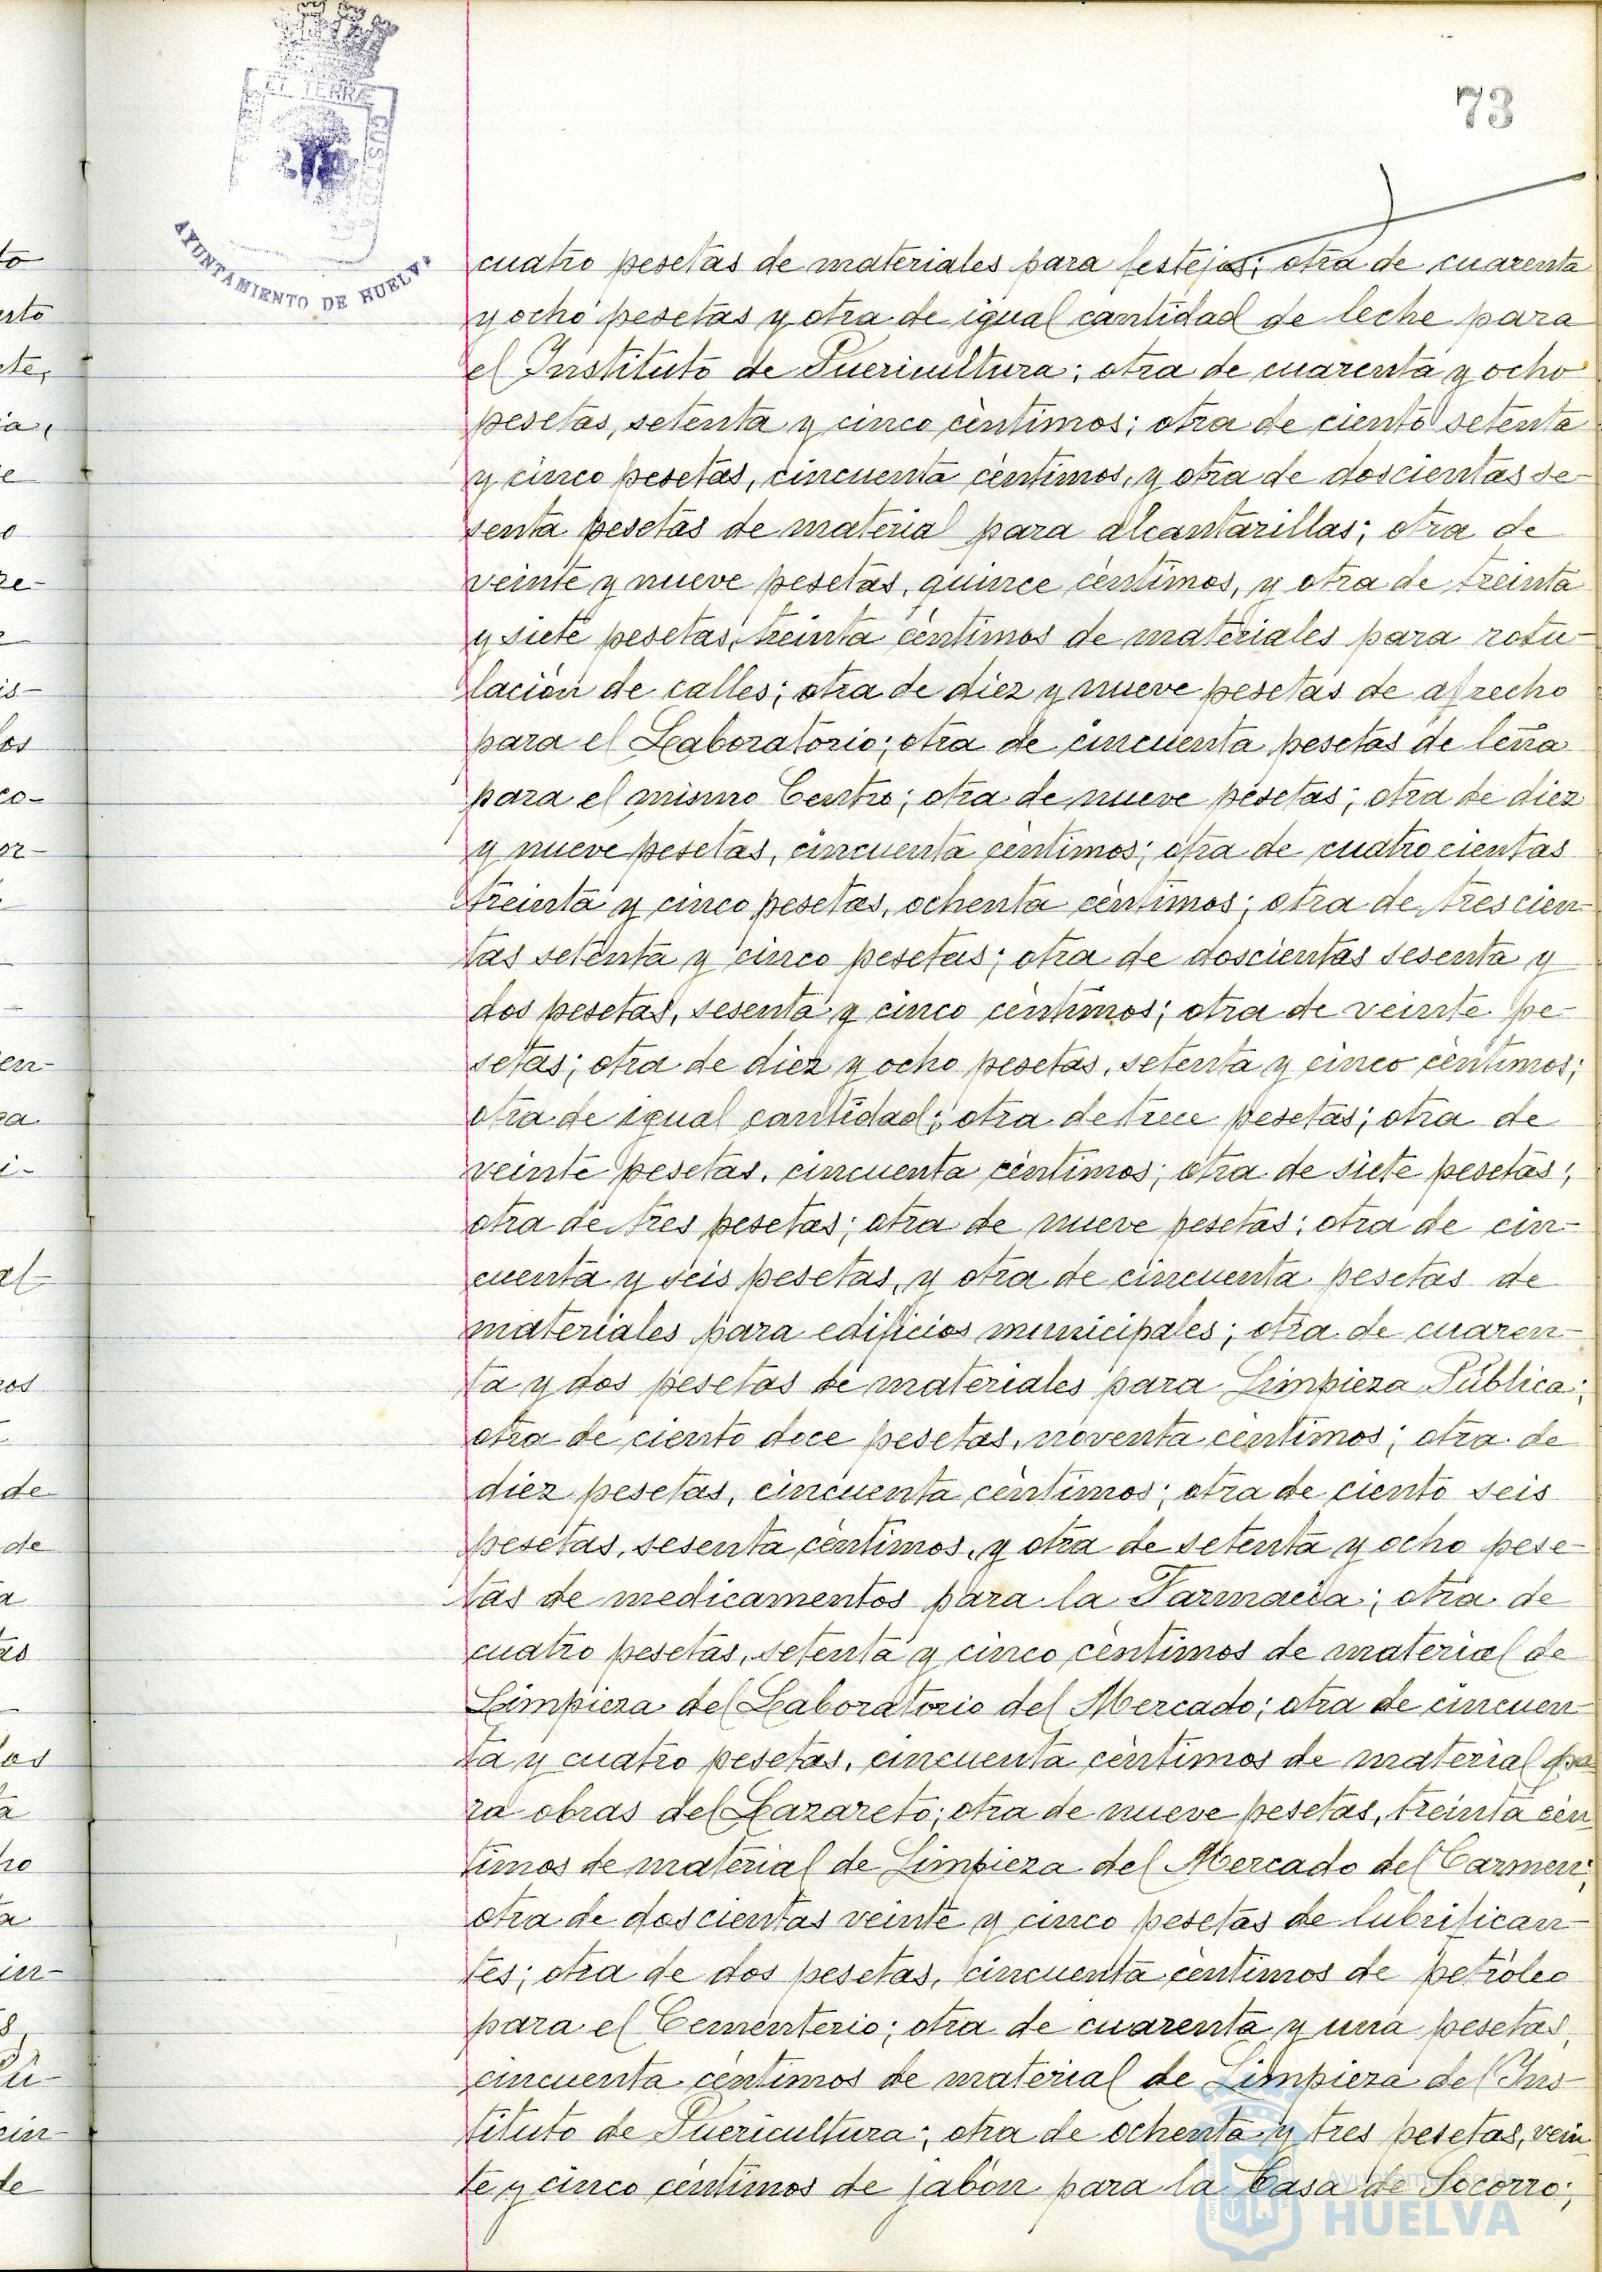 73
ET TERRÆ CUSTODIA
AYUNTAMIENTO DE HUELVA
cuatro pesetas de materiales para festejos; otra de cuarenta
y ocho pesetas y otra de igual cantidad de leche para
el Instituto de Puericultura; otra de cuarenta y ocho
pesetas, setenta y cinco cèntimos; otra de ciento setenta
y cinco pesetas, cincuenta cèntimos, y otra de doscientas se-
senta pesetas de material para alcantarillas; otra de
veinte y nueve pesetas, quince cèntimos, y otra de treinta
y siete pesetas, treinta cèntimos de materiales para rotu-
laciòn de calles; otra de diez y nueve pesetas de afrecho
para el Laboratorio; otra de cincuenta pesetas de leña
para el mismo Centro; otra de nueve pesetas; otra de diez
y nueve pesetas, cincuenta cèntimos; otra de cuatrocientas
treinta y cinco pesetas, ochenta cèntimos; otra de trescien-
tas setenta y cinco pesetas; otra de doscientas sesenta y
dos pesetas, sesenta y cinco cèntimos; otra de veinte pe-
setas; otra de diez y ocho pesetas, setenta y cinco cèntimos;
otra de igual cantidad; otra de trece pesetas; otra de
veinte pesetas, cincuenta cèntimos; otra de siete pesetas;
otra de tres pesetas; otra de nueve pesetas; otra de cin-
cuenta y seis pesetas, y otra de cincuenta pesetas de
materiales para edificios municipales; otra de cuaren-
ta y dos pesetas de materiales para Limpieza Pùblica;
otra de ciento doce pesetas, noventa cèntimos; otra de
diez pesetas, cincuenta cèntimos; otra de ciento seis
pesetas, sesenta cèntimos, y otra de setenta y ocho pese-
tas de medicamentos para la Farmacia; otra de
cuatro pesetas, setenta y cinco cèntimos de material de
Limpieza del Laboratorio del Mercado; otra de cincuen-
ta y cuatro pesetas, cincuenta cèntimos de material pa
ra obras del Lazareto; otra de nueve pesetas, treinta cèn
timos de material de Limpieza del Mercado del Carmen;
otra de doscientas veinte y cinco pesetas de lubrifican-
tes; otra de dos pesetas, cincuenta cèntimos de petròleo
para el Cementerio; otra de cuarenta y una pesetas,
cincuenta cèntimos de material de Limpieza del Ins-
tituto de Puericultura; otra de ochenta y tres pesetas, vein
te y cinco cèntimos de jabòn para la Casa de Socorro;
Ayuntamiento de
HUELVA